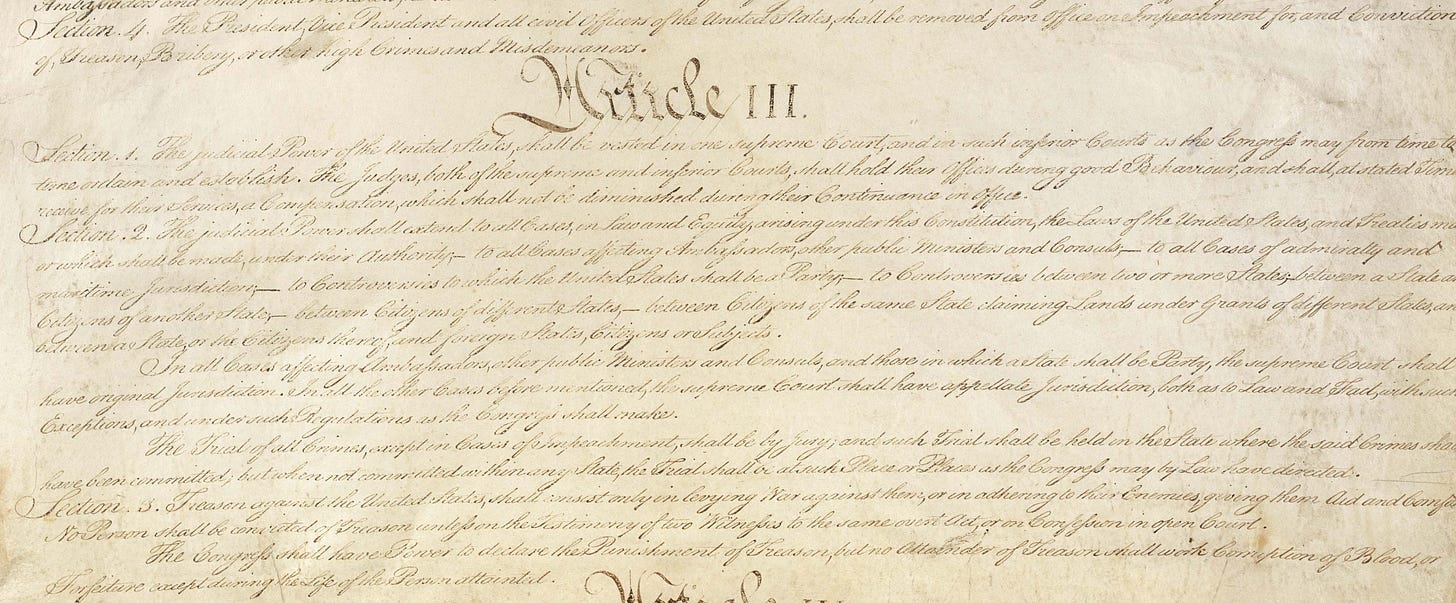 Ambassadors and other public
Section. 4. The President, Vice President and all civil Officers of the United States, shall be removed from Office on Impeachment for, and Conviction
of, Treason, Bribery, or other high Crimes and Misdemeanors.
Article III.
Section. 1. The judicial Power of the United States, shall be vested in one supreme Court, and in such inferior Courts as the Congress may from time to
time ordain and establish. The Judges, both of the supreme and inferior Courts, shall hold their Offices during good Behaviour, and shall, at stated Times,
receive for their Services, a Compensation, which shall not be diminished during their Continuance in Office.
Section. 2. The judicial Power shall extend to all Cases, in Law and Equity, arising under this Constitution, the Laws of the United States, and Treaties m
or which shall be made, under their Authority;— to all Cases affecting Ambassadors, other public Ministers and Consuls;— to all Cases of admiralty and
maritime Jurisdiction;— to Controversies to which the United States shall be a Party;— to Controversies between two or more States;— between a State
Citizens of another State;— between Citizens of different States,— between Citizens of the same State claiming Lands under Grants of different States, a
between a State, or the Citizens thereof, and foreign States, Citizens or Subjects.
In all Cases affecting Ambassadors, other public Ministers and Consuls, and those in which a State shall be Party, the supreme Court shall
have original Jurisdiction. In all the other Cases before mentioned, the supreme Court shall have appellate Jurisdiction, both as to Law and Fact, with such
Exceptions, and under such Regulations as the Congress shall make.
The Trial of all Crimes, except in Cases of Impeachment, shall be by Jury; and such Trial shall be held in the State where the said Crimes shall
have been committed; but when not committed within any State, the Trial shall be at such Place or Places as the Congress may by Law have directed.
Section. 3. Treason against the United States, shall consist only in levying War against them, or in adhering to their Enemies, giving them Aid and Comf
No Person shall be convicted of Treason unless on the Testimony of two Witnesses to the same overt Act, or on Confession in open Court.
The Congress shall have Power to declare the Punishment of Treason, but no Attainder of Treason shall work Corruption of Blood, or
Forfeiture except during the Life of the Person attainted.
Article